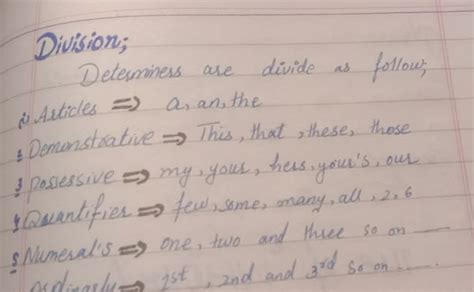 Division;
Determiners are divide as follow;
1 Articles ⇒ a, an, the
2 Demonstrative ⇒ This, that, these, those
3 possessive ⇒ my, your, hers, your's, our
4 Quantifier ⇒ few, some, many, all, 2, 6
5 Numeral's ⇒ one, two and three so on
⇒ 1st, 2nd and 3rd so on